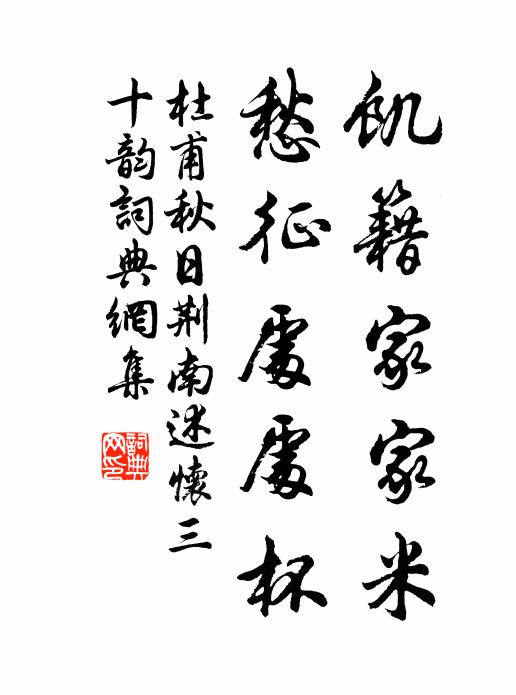 飢籍家家米
愁征處處杯
杜甫秋日荆南述懷三
十韵詞典網集
詞典網印